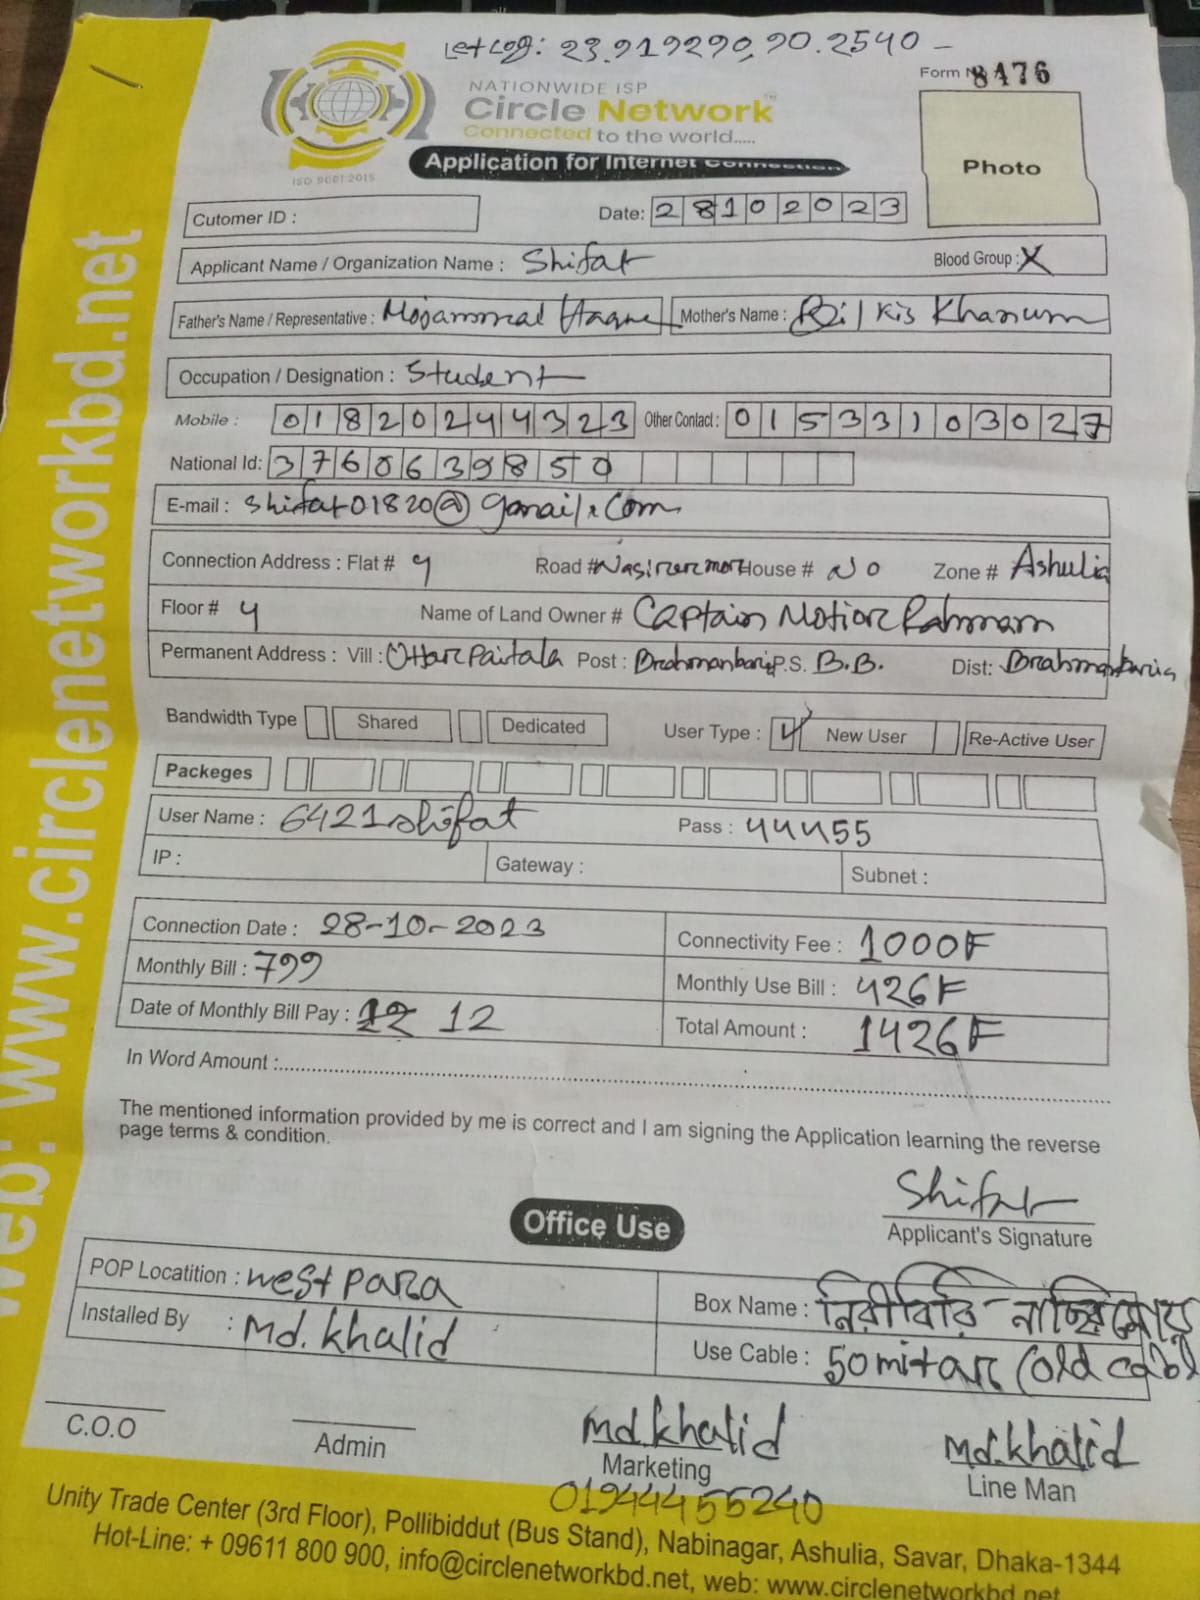 Let Log: 23.919290, 90.2540 -
NATIONWIDE ISP
Circle Network
Connected to the world.....
ISO 9001:2015
Form N 8476
Photo
Application for Internet Connection
Cutomer ID :
Date: 28102023
Applicant Name / Organization Name : Shifat
Blood Group : X
Father's Name / Representative : Mojammal Haque
Mother's Name : Bilkis Khanum
Occupation / Designation : Student
Mobile : 01820244323 Other Contact : 01533103027
National Id: 3760639850
E-mail : shifat01820@gmail.com
Connection Address : Flat # 4 Road # House # NO Zone # Ashulia
Floor # 4 Name of Land Owner # Captain Motior Rahman
Permanent Address : Vill : Uttar Pairtala Post : Brahmanbaria P.S. B.B. Dist: Brahmanbaria
Bandwidth Type Shared Dedicated User Type : ✓ New User Re-Active User
Packeges
User Name : 6421shifat Pass : 444455
IP : Gateway : Subnet :
Connection Date : 28-10-2023 Connectivity Fee : 1000F
Monthly Bill : 799 Monthly Use Bill : 426F
Date of Monthly Bill Pay : 12 Total Amount : 1426F
In Word Amount :
The mentioned information provided by me is correct and I am signing the Application learning the reverse
page terms & condition.
Shifat
Applicant's Signature
Office Use
POP Locatition : west para
Box Name : নিরীবিরি
Installed By : Md. khalid
Use Cable : 50 mitar (old cabl
C.O.O
Admin
md.khalid
Marketing
01944455240
Md.khalid
Line Man
Unity Trade Center (3rd Floor), Pollibiddut (Bus Stand), Nabinagar, Ashulia, Savar, Dhaka-1344
Hot-Line: + 09611 800 900, info@circlenetworkbd.net, web: www.circlenetworkbd.net
Web: www.circlenetworkbd.net